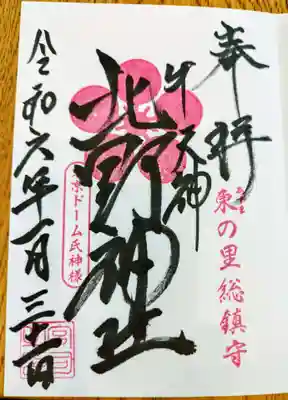 奉拝
東の里総鎮守
牛天神
北野神社
京ドーム氏神様
令和六年一月三十一日